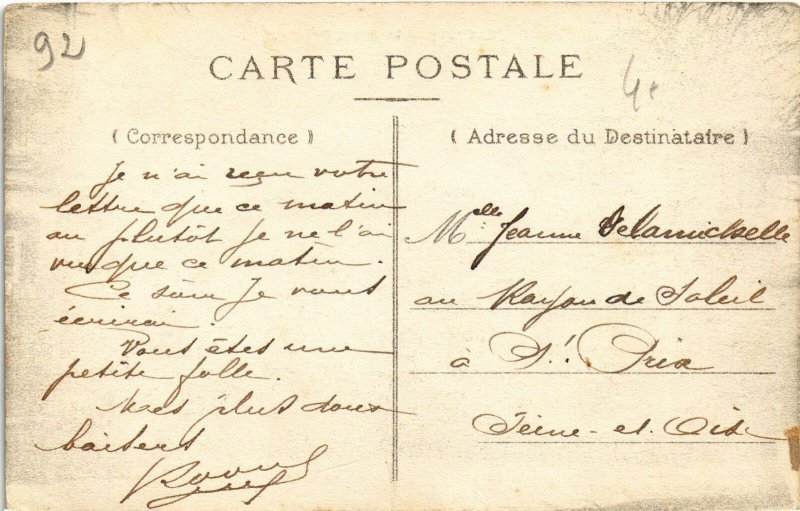 92
CARTE POSTALE
4
( Correspondance )
( Adresse du Destinataire )
Je n'ai reçu votre
lettre que ce matin
au plutôt je ne l'ai
vu que ce matin.
Ce soir Je vous
écrirai.
Vous êtes une
petite folle.
Mes plus doux
baisers
Mlle Jeanne
au Rayon de Soleil
à St. Prix
Seine-et-Oise